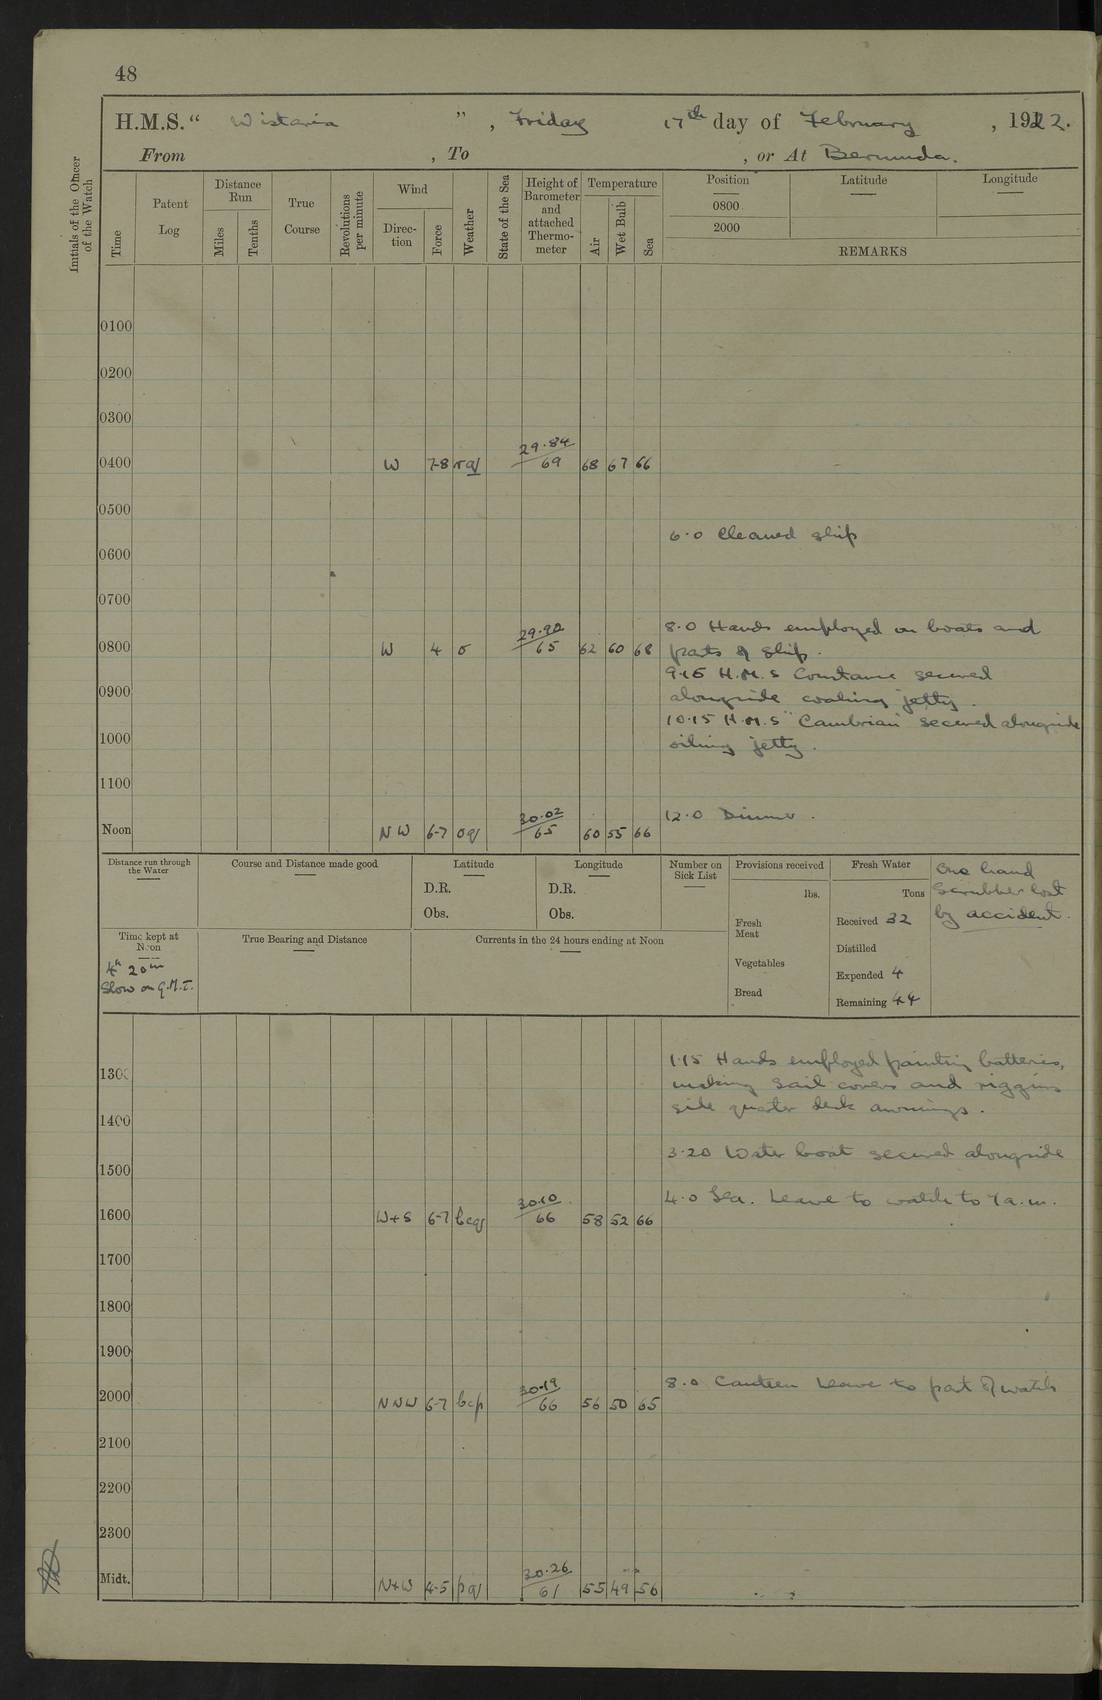 48
H.M.S. “ Wistaria ” , Friday 17th day of February , 1922.
From , To , or At Bermuda.
Initials of the Officer of the Watch
Time
Patent Log
Distance Run
Miles
Tenths
True Course
Revolutions per minute
Wind
Direc-tion
Force
Weather
State of the Sea
Height of Barometer and attached Thermo-meter
Temperature
Air
Wet Bulb
Sea
Position
Latitude
Longitude
0800
2000
REMARKS
0100
0200
0300
0400 W 7-8 rq 29.84 69 68 67 66
0500
6.0 Cleaned ship
0600
0700
8.0 Hands employed on boats and
0800 W 4 o 29.90 65 62 60 68 parts of ship.
9.15 H.M.S Constance secured
0900
alongside coaling jetty.
10.15 H.M.S "Cambrian" secured alongside
1000 oiling jetty.
1100
12.0 Dinner.
Noon NW 6-7 oq 30.02 65 60 55 66
Distance run through the Water
Course and Distance made good
Latitude
D.R.
Obs.
Longitude
D.R.
Obs.
Number on Sick List
Provisions received
lbs.
Fresh Meat
Vegetables
Bread
Fresh Water
Tons
Received 32
Distilled
Expended 4
Remaining 44
One hand
Scrubber lost
by accident.
Time kept at Noon
4h 20m
Slow on G.M.T.
True Bearing and Distance
Currents in the 24 hours ending at Noon
1.15 Hands employed painting batteries,
1300 making sail covers and rigging
side quarter deck awnings.
1400
3.20 Water boat secured alongside
1500
4.0 Leave to watch to 7 a.m.
1600 W+S 6-7 bcq 30.10 66 58 52 66
1700
1800
1900
8.0 Canteen Leave to part of watch
2000 NNW 6-7 bcp 30.19 66 56 50 65
2100
2200
2300
Midt. N+W 4-5 pq 30.26 61 55 49 56